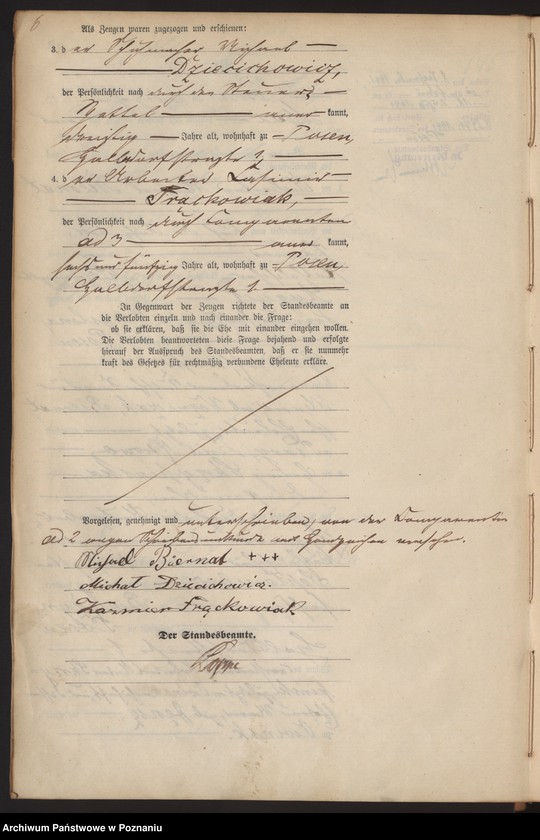 6
Als Zeugen waren zugezogen und erschienen:
3. der Schuhmacher Michael
Dziecichowicz,
der Persönlichkeit nach durch den Steuer=
Zettel aner kannt,
dreißig Jahre alt, wohnhaft zu Posen,
Halbdorfstraße
4. der Arbeiter Casimir
Frąckowiak,
der Persönlichkeit nach durch Comparenten
ad 3 aner kannt,
sechs und fünfzig Jahre alt, wohnhaft zu Posen,
Halbdorfstraße
In Gegenwart der Zeugen richtete der Standesbeamte an
die Verlobten einzeln und nach einander die Frage:
ob sie erklären, daß sie die Ehe mit einander eingehen wollen.
Die Verlobten beantworteten diese Frage bejahend und erfolgte
hierauf der Ausspruch des Standesbeamten, daß er sie nunmehr
kraft des Gesetzes für rechtmäßig verbundene Eheleute erkläre.
Vorgelesen, genehmigt und unterschrieben, von der Comparentin
ad 2 wegen Schreibensunkunde mit Handzeichen versehen.
Michael Biernat +++
Michał Dziecichowicz.
Kazmierz Frąckowiak
Der Standesbeamte.
Archiwum Państwowe w Poznaniu